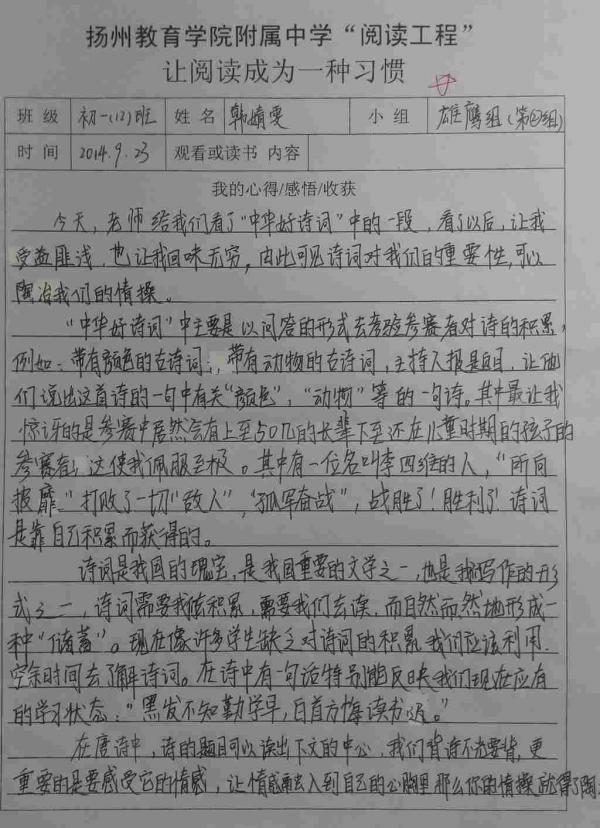 扬州教育学院附属中学“阅读工程”
让阅读成为一种习惯
班 级 初一(12)班 姓 名 韩婧雯 小 组 雄鹰组(第②组)
时 间 2014.9.23 观看或读书 内容
我的心得/感悟/收获
今天，老师给我们看了“中华好诗词”中的一段，看了以后，让我
受益匪浅，也让我回味无穷，由此可见诗词对我们的重要性，可以
陶冶我们的情操。
“中华好诗词”中主要是以问答的形式去考验参赛者对诗的积累，
例如：带有颜色的古诗词；带有动物的古诗词，主持人报题目，让他
们说出这首诗的一句中有关“颜色”，“动物”等的一句诗。其中最让我
惊讶的是参赛中居然会有上至50几的长辈下至还在儿童时期的孩子的
参赛者，这使我佩服至极。其中有一位名叫李四维的人，“所向
披靡”打败了一切“敌人”，“孤军奋战”，战胜了！胜利了！诗词
是靠自己积累而获得的。
诗词是我国的瑰宝，是我国重要的文学之一，也是我们写作的形
式之一，诗词需要我们积累，需要我们去读，而自然而然地形成一
种“储蓄”。现在像许多学生缺乏对诗词的积累，我们应该利用
空余时间去了解诗词。在诗中有一句话特别能反映我们现在应有
的学习状态：“黑发不知勤学早，白首方悔读书迟。”
在唐诗中，诗的题目可以读出下文的中心，我们背诗不光要背，更
重要的是要感受它的情感，让情感融入到自己的心脑里 那么你的情操就得了陶